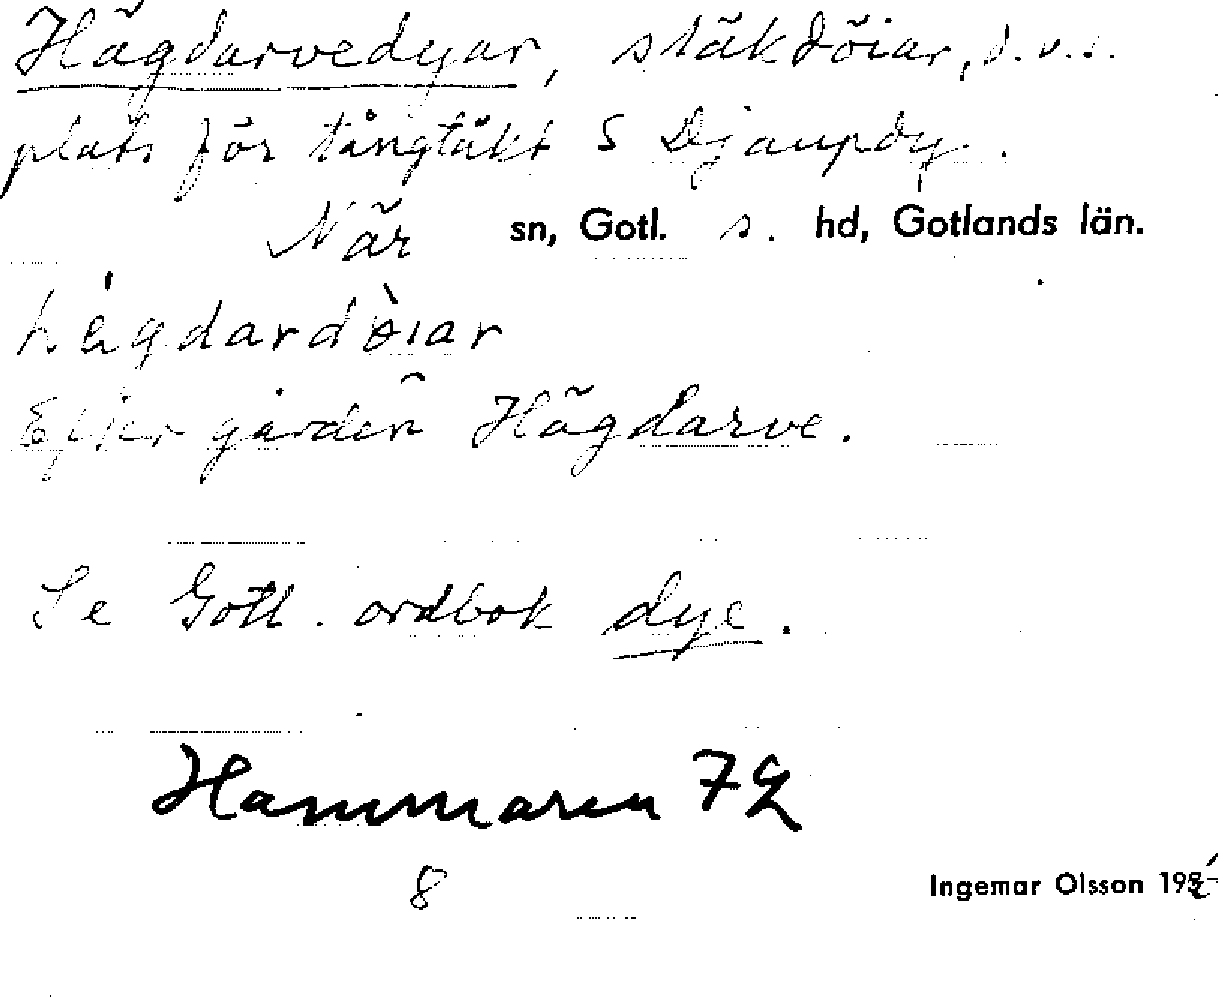 Hägdarvedyar, stäkdöiar, d.v.s.
plats för tångtäkt S Djaupdy.
När sn, Gotl. s. hd, Gotlands län.
hägdardòiar
Efter gården Hägdarve.
Se Gotl. ordbok dye.
Hammaren 72
8
Ingemar Olsson 198